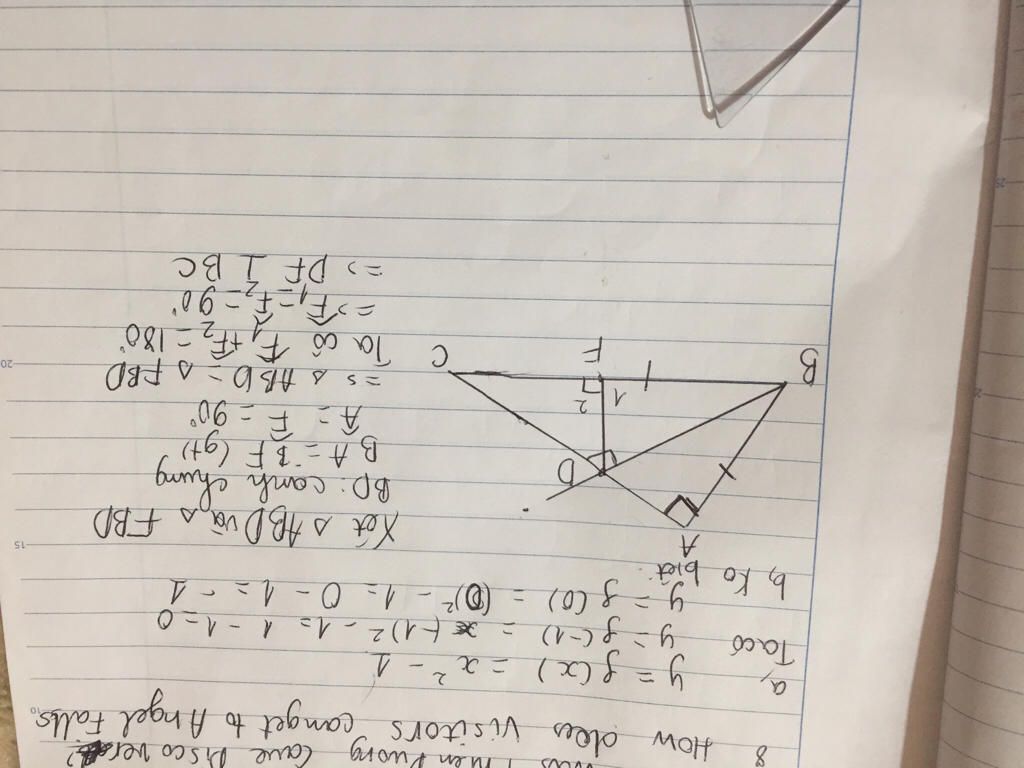 Thien Duong Cave Discover
8 How does visitors can get to Angel Falls
a, y = f(x) = x² - 1
Ta có y = f(-1) = (-1)² - 1 = 1 - 1 = 0
y = f(0) = (0)² - 1 = 0 - 1 = -1
b, Ko biết
Xét △ ABD và △ FBD
BD: cạnh chung
BA = BF (gt)
Â = F̂ = 90°
=> △ ABD = △ FBD
Ta có F̂1 + F̂2 = 180°
=> F̂1 = F̂2 = 90°
=> DF ⊥ BC
A
D
2
1
B
F
C
10
15
20
25